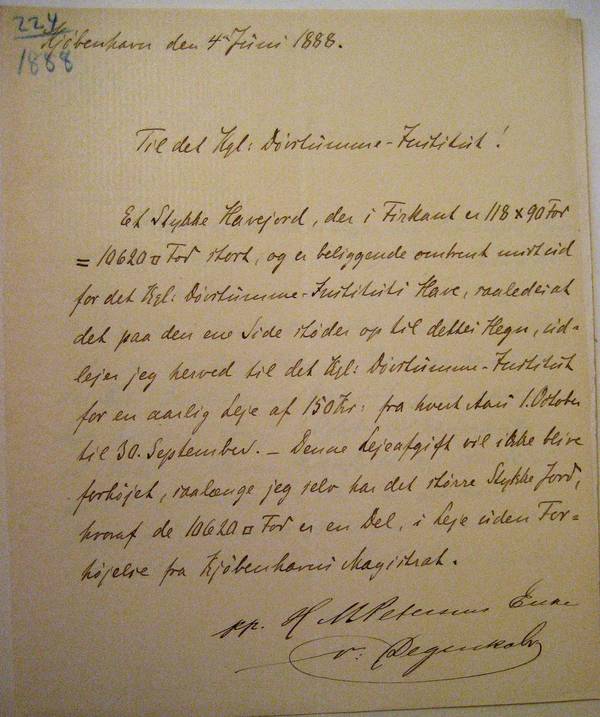 224
1888
Kjøbenhavn den 4de Juni 1888.
Til det Kgl: Døvstumme-Institut!
Et Stykke Havejord, der i Firkant er 118 × 90 Fod
= 10620 □ Fod stort, og er beliggende omtrent midt ud
for det Kgl: Døvstumme-Instituts Have, saaledes at
det paa den ene Side støder op til dettes Hegn, ud-
lejer jeg herved til det Kgl: Døvstumme-Institut
for en aarlig Leje af 150 Kr: fra hvert Aars 1. October
til 30. September. – Denne Lejeafgift vil ikke blive
forhøjet, saalænge jeg selv har det større Stykke Jord,
hvoraf de 10620 □ Fod er en Del, i Leje uden For=
højelse fra Kjøbenhavns Magistrat.
pp. H M Petersens Enke
v: Degenkolv